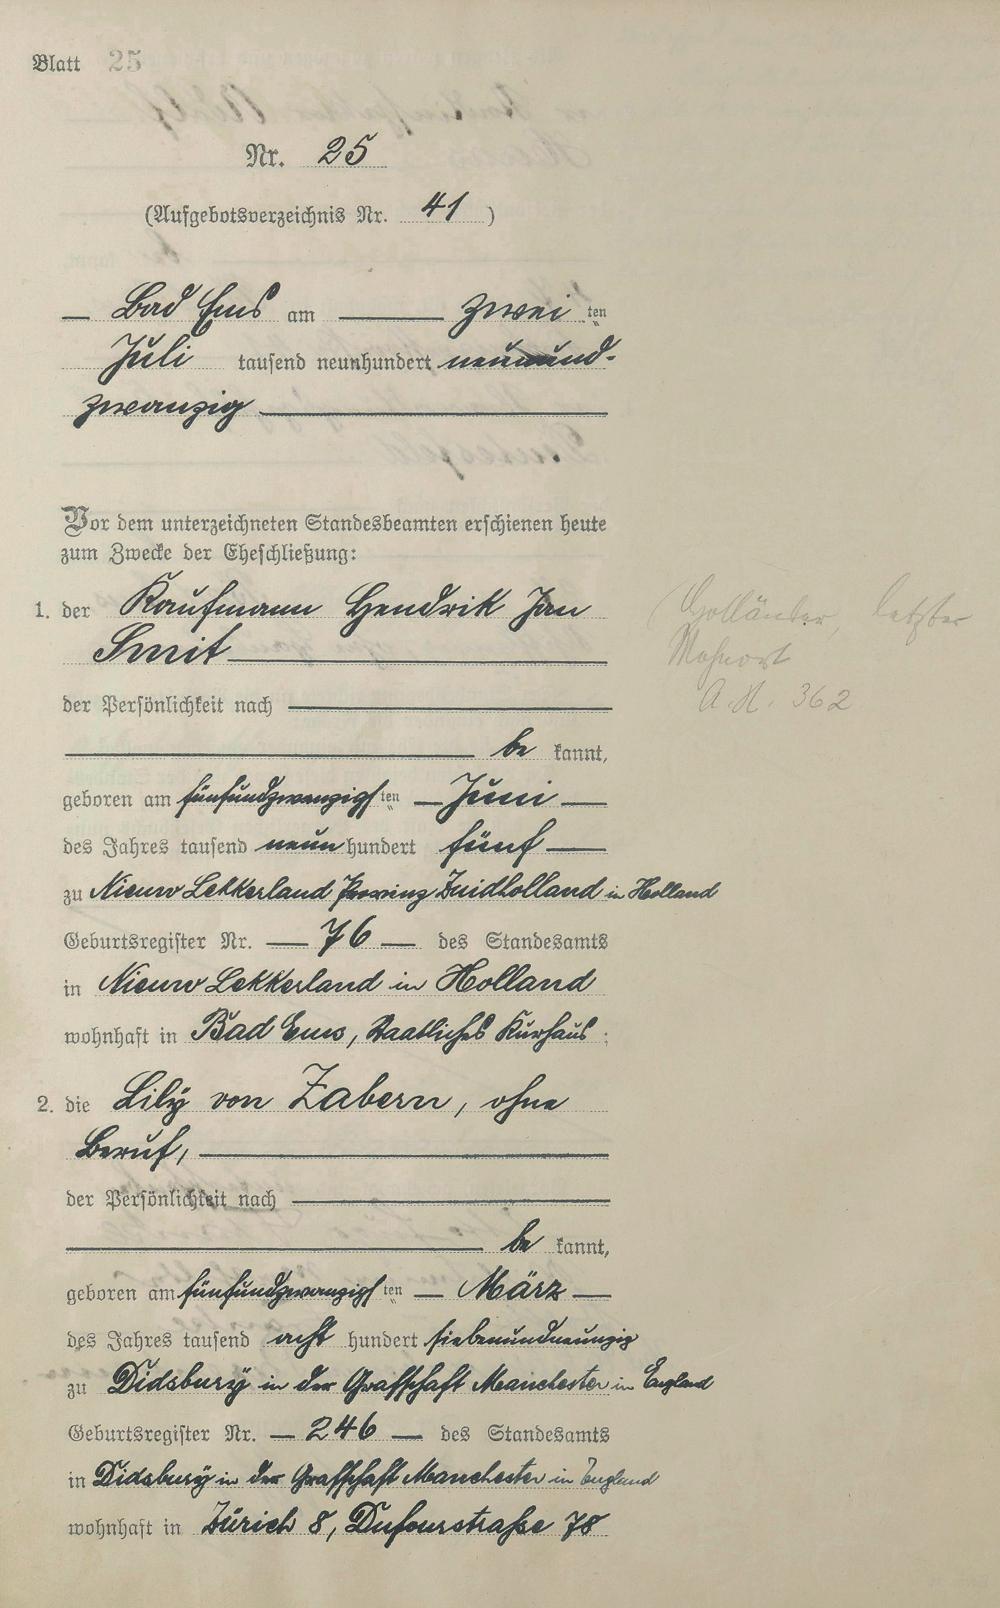 Blatt 25
Nr. 25
(Aufgebotsverzeichnis Nr. 41)
Bad Ems am zweiten
Juli tausend neunhundert neunund-
zwanzig
Vor dem unterzeichneten Standesbeamten erschienen heute
zum Zwecke der Eheschließung:
1. der Kaufmann Hendrik Jan
Smit
der Persönlichkeit nach
be kannt,
geboren am fünfundzwanzigsten Juni
des Jahres tausend neun hundert fünf
zu Nieuw Lekkerland Provinz Zuidholland in Holland
Geburtsregister Nr. 76 des Standesamts
in Nieuw Lekkerland in Holland
wohnhaft in Bad Ems, Staatliches Kurhaus;
(Holländer, letzter
Wohnort
A. H. 362
2. die Lily von Zabern, ohne
Beruf,
der Persönlichkeit nach
be kannt,
geboren am fünfundzwanzigsten März
des Jahres tausend acht hundert siebenundneunzig
zu Didsbury in der Grafschaft Manchester in England
Geburtsregister Nr. 246 des Standesamts
in Didsbury in der Grafschaft Manchester in England
wohnhaft in Zürich 8, Dufourstraße 78